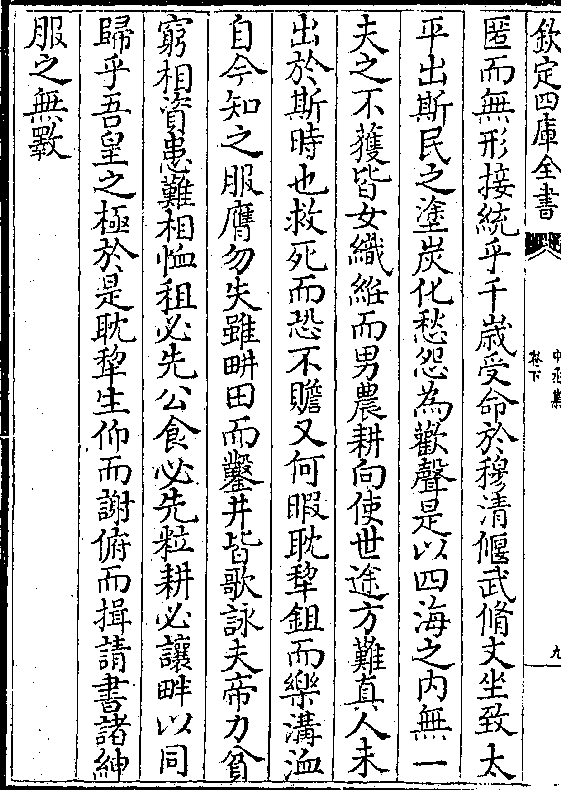 欽定四庫全書
中丞集
卷下
九
匿而無形接統乎千歳受命於穆清偃武脩文坐致太
平出斯民之塗炭化愁怨為歡聲是以四海之内無一
夫之不獲皆女織絍而男農耕向使世途方難真人未
出於斯時也救死而恐不贍又何暇耽犂鉏而樂溝洫
自今知之服膺勿失雖畊田而鑿井皆歌詠夫帝力貧
窮相資患難相恤租必先公食必先粒耕必讓畔以同
歸乎吾皇之極於是耽犂生仰而謝俯而揖請書諸紳
服之無斁